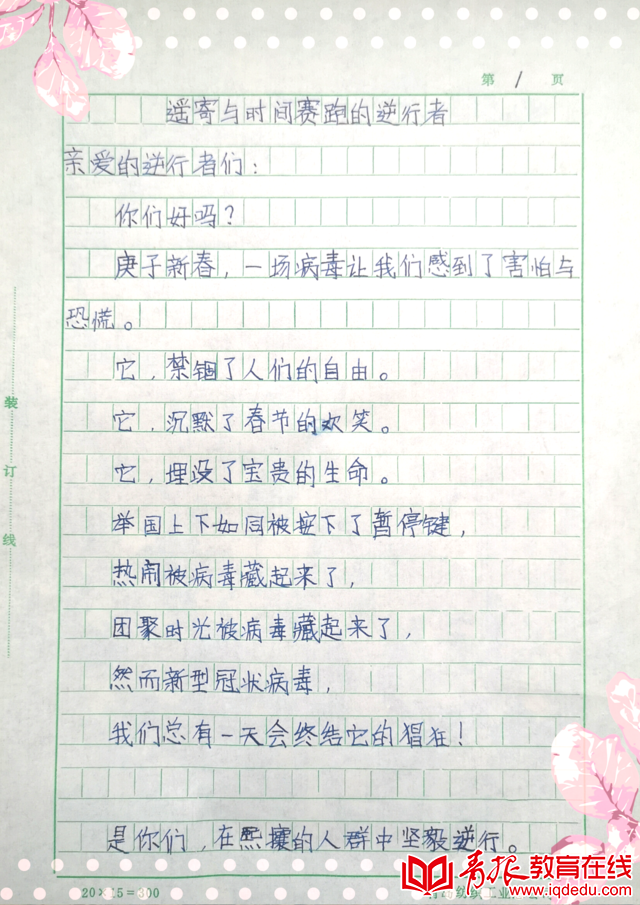 第 1 页
遥寄与时间赛跑的逆行者
亲爱的逆行者们：
你们好吗？
庚子新春，一场病毒让我们感到了害怕与
恐慌。
它，禁锢了人们的自由。
它，沉默了春节的欢笑。
它，埋没了宝贵的生命。
举国上下如同被按下了暂停键，
热闹被病毒藏起来了，
团聚时光被病毒藏起来了，
然而新型冠状病毒，
我们总有一天会终结它的猖狂！
是你们，在熙攘的人群中坚毅逆行。
装
订
线
20×15=300
纺织工业
青报教育在线
www.iqdedu.com